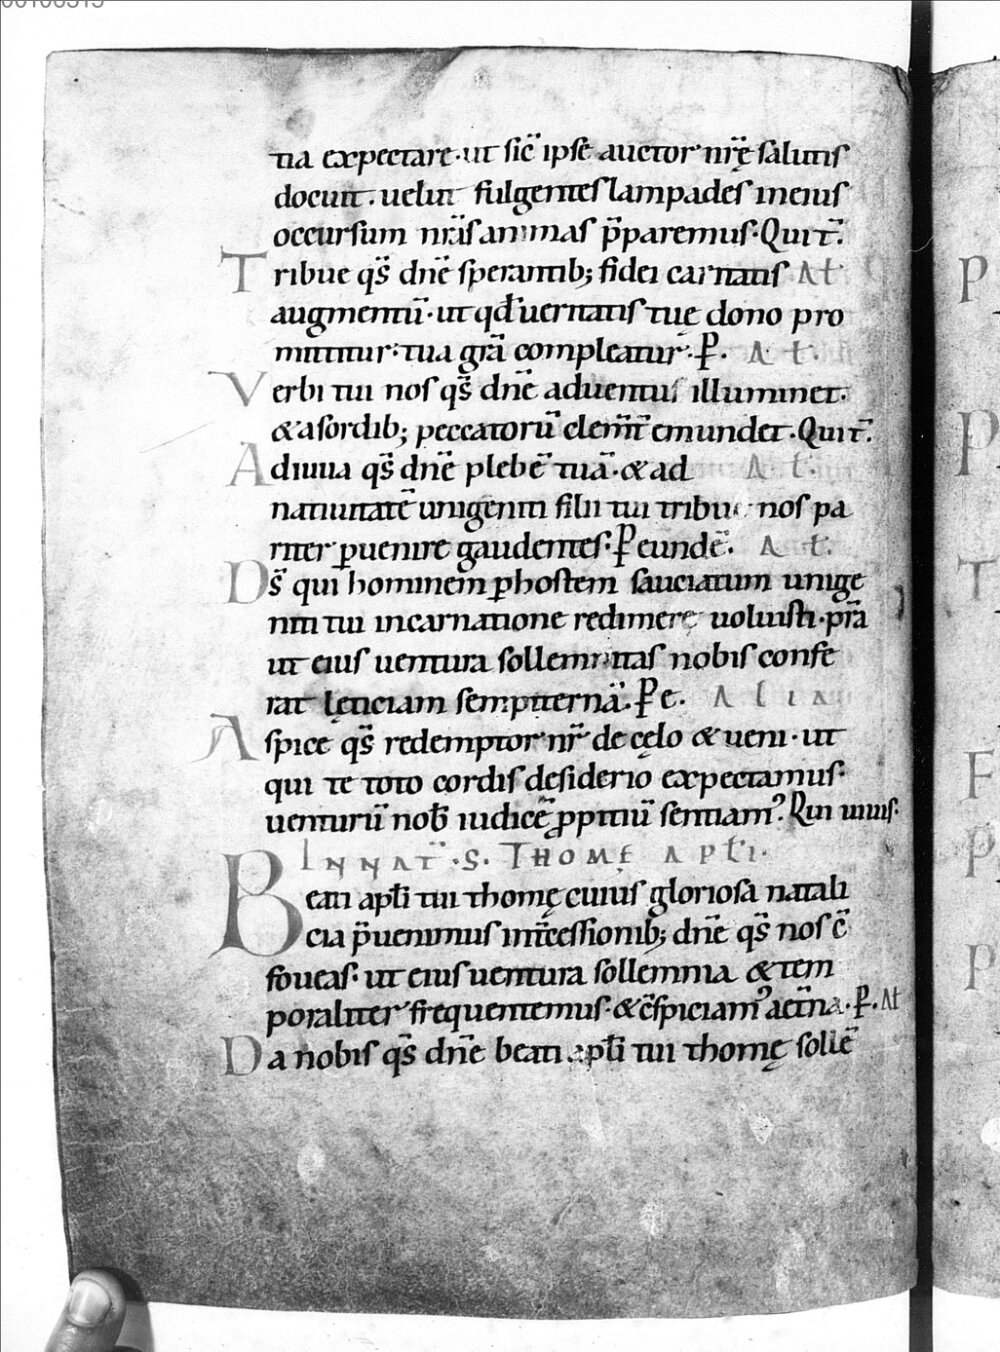 tia expectare · ut sic̄ ipse auctor nr̄ę salutis
docuit . uelut fulgentes lampades ineius
occursum nr̄as animas p̄paremus · Qui t̄.
Tribue qs̄ dn̄e sperantib; fidei caritatis At
augmentū · ut qđ ueritatis tuę dono pro
mittitur · tua gr̄a compleatur · P̲ . A t .
Verbi tui nos qs̄ dn̄e aduentus illuminet ·
& a sordib; peccatorū clem̄t emundet · Qui t̄.
Adiuua qs̄ dn̄e plebē tuā · & ad A t .
natiuitatē unigeniti filii tui tribue nos pa
riter ꝑuenire gaudentes · P̲ eundē . A t .
Ds̄ qui hominem ꝑ hostem sauciatum unige
niti tui incarnatione redimere uoluisti · pr̄a
ut eius uentura sollemnitas nobis confe
rat lęticiam sempiternā · P̲ e . A l i a
Aspice qs̄ redemptor nr̄ de cęlo & ueni · ut
qui te toto cordis desiderio expectamus ·
uenturū nob̄ iudicē ꝓpitiū sentiam᾿ Qui uiuis .
IN NAT̄ · S . THOMĘ APƚI .
Beati apƚi tui thomę cuius gloriosa natali
cia p̄uenimus int̄cessionib; dn̄e qs̄ nos c̄
foueas · ut eius uentura sollemnia & tem
poraliter frequentemus · & c̄spiciam᾿ aet̄na · P̲ . At
Da nobis qs̄ dn̄e beati apƚi tui thomę sollē